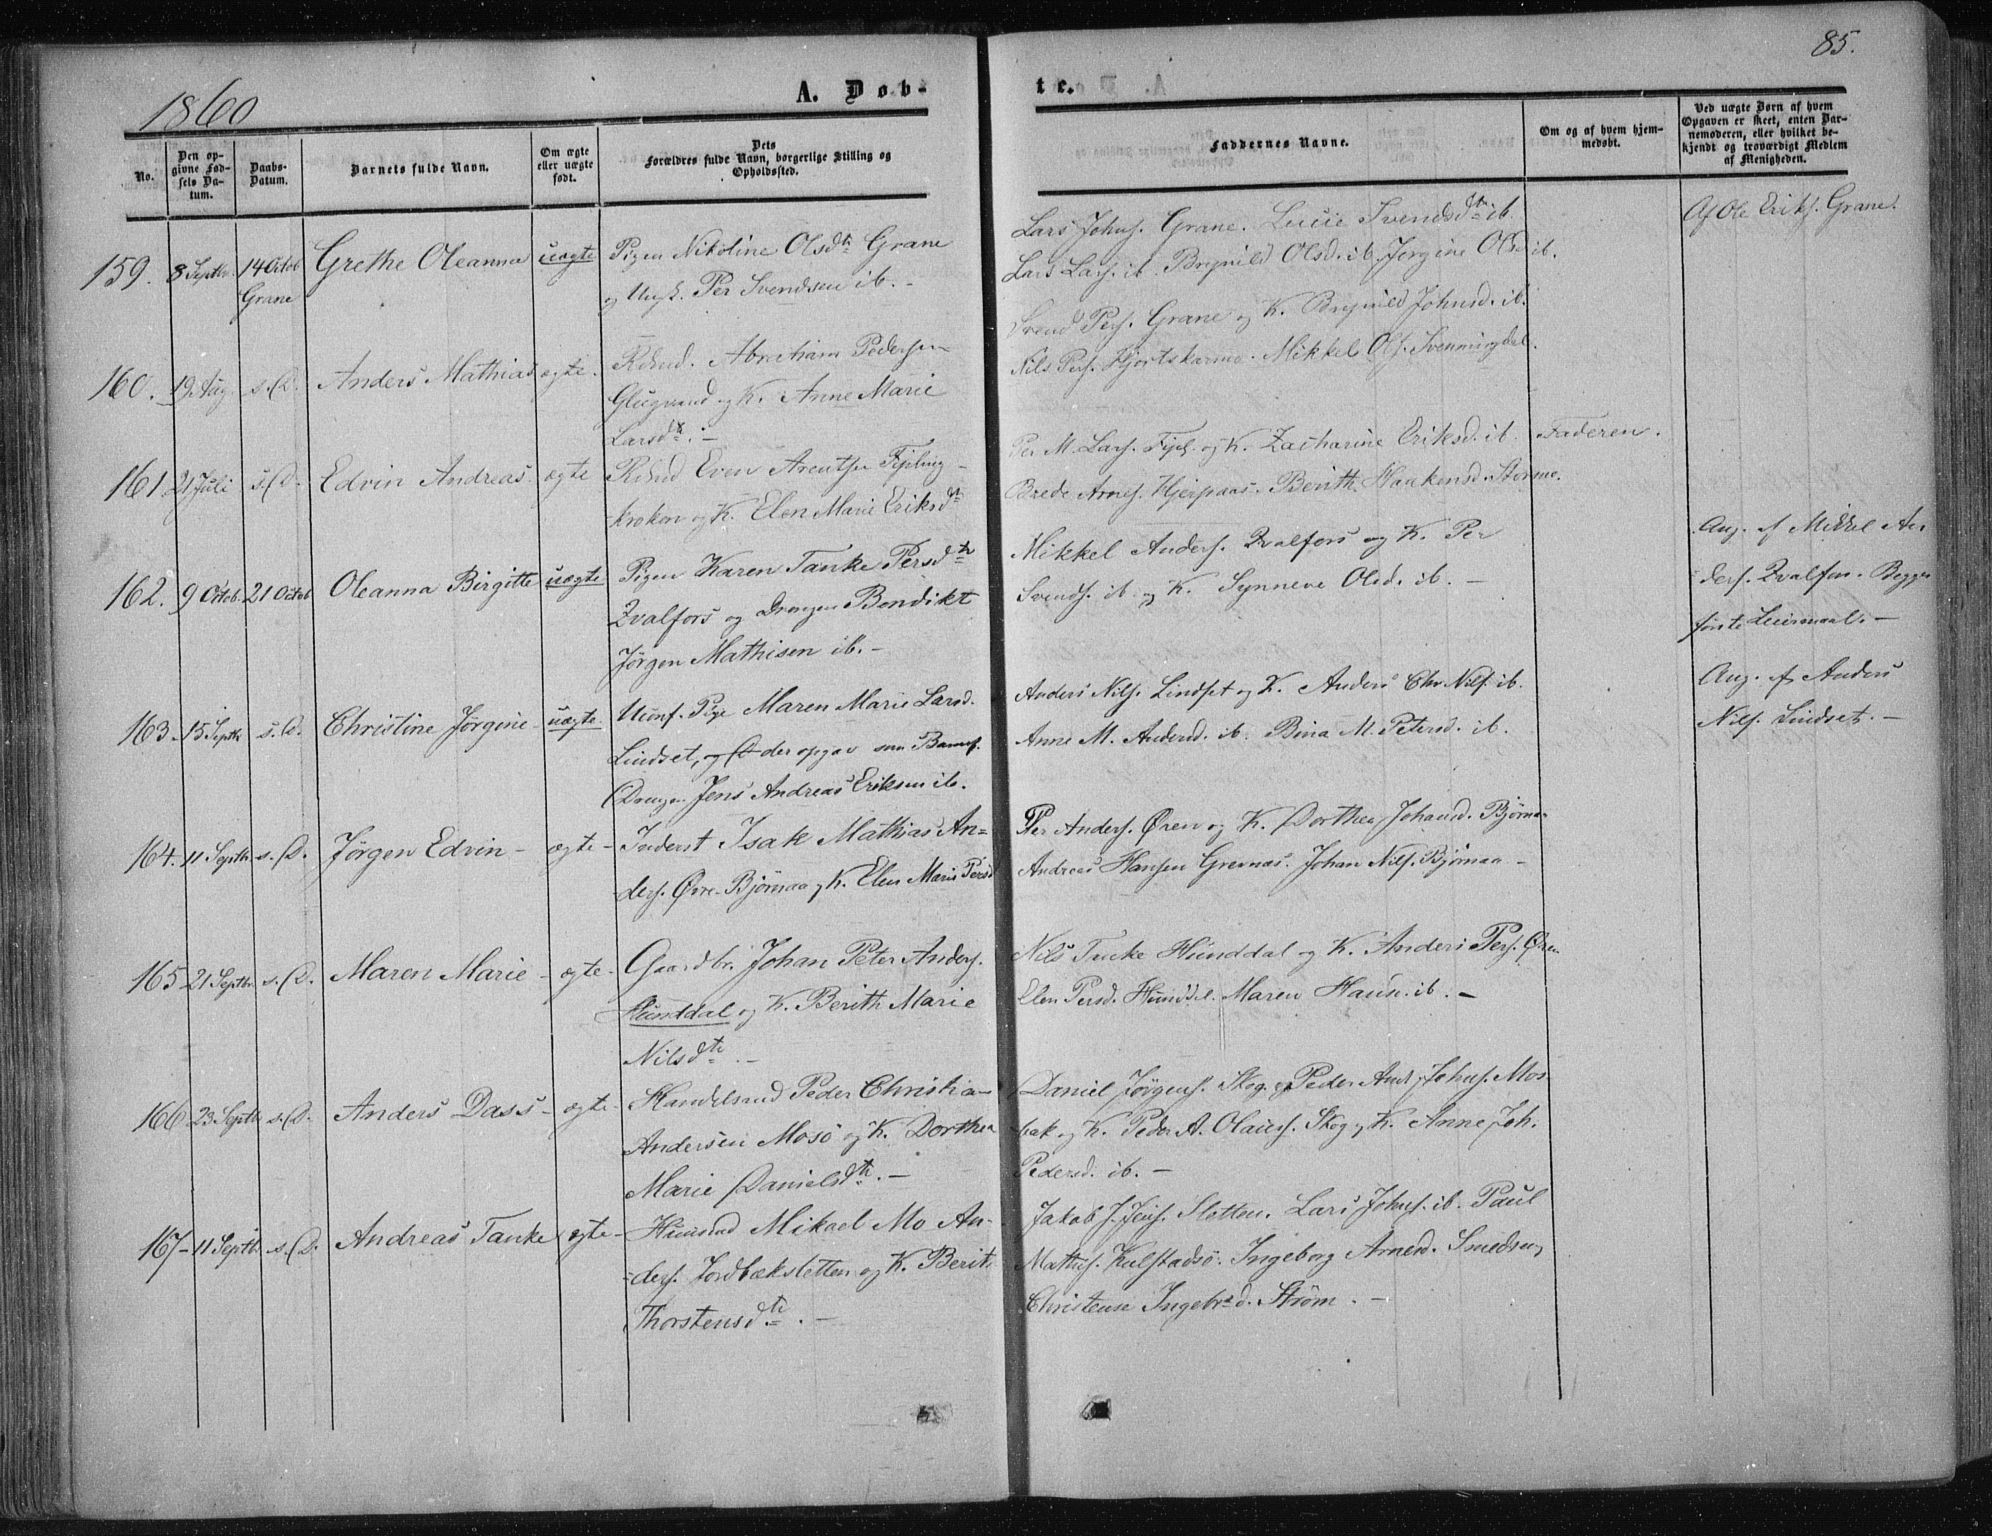 85.
1860
A. Døb-
te.
No.
Den opgivne Fødsels Datum.
Daabs-Datum.
Barnets fulde Navn.
Om ægte eller uægte født.
Dets Forældres fulde Navn, borgerlige Stilling og Opholdssted.
Faddernes Navne.
Om og af hvem hjemmedøbt.
Ved uægte Børn af hvem Opgaven er skeet, enten Barnemoderen, eller hvilket bekjendt og troværdigt Medlem af Menigheden.
159. 8 Septbr. 14 Octob Grane Grethe Oleanna uægte Pigen Nikoline Olsdtr Grane
og Ungk. Per Svendsen ib. -
Lars Johns. Grane. Lucie Svendsdtr ib.
Lars Lars. ib. Brynild Olsd. ib. Jørgine Olsd ib.
Af Ole Eriks. Grane.
160. 19 Aug. s. D. Anders Mathias ægte. Rdmd. Abraham Pedersen
Glugvand og K. Anne Marie
Larsdtr. -
Svend Pers. Grane og K. Brynild Johnsd. ib.
Nils Pers. Hjortskarmo. Mikkel Ols. Svenningdal.
161 21 Juli s. D. Edvin Andreas ægte Rdmd Even Arentsen Fipling-
kroken og K. Elen Marie Eriksdtr
Per M. Lars. Fipl. og K. Zacharine Eriksd. ib. Faderen.
Brede Arnes. Hjerpaas. Berith Haakensd. Stormo.
162. 9 Octob. 21 Octob Oleanna Birgitte uægte Pigen Karen Tanke Persdtr
Kvalfors og Drengen Bendikt
Jørgen Mathisen ib. -
Mikkel Anders. Kvalfors og K. Per
Svends. ib. og K. Synneve Olsd. ib. -
Ang. af Mikkel An
ders. Kvalfors. Begges
første Leiermaal. -
163. 15 Septbr s. D. Christine Jørgine - uægte Uconf. Pige Maren Marie Larsd.
Lindset, og der opgav som Barnef.
Drengen Jens Andreas Eriksen ib.
Anders Nils. Lindset og K. Anders Chr. Nils. ib.
Anne M. Andersd. ib. Bina M. Petersd. ib.
Ang. af Anders
Nils. Lindset. -
164. 11 Septbr s. D. Jørgen Edvin - ægte - Inderst Isak Mathias An=
ders. Øvre-Bjørnaa og K. Elen Marie Persd
Per Anders. Øren og K. Dorthea Johansd. Bjørnaa
Andreas Hansen Grennes. Johan Nils. Bjørnaa -
165 21 Septbr s. D. Maren Marie - ægte - Gaardbr. Johan Peter Anders.
Hunddal og K. Berith Marie
Nilsdtr. -
Nils Tanke Hunddal og K. Anders Pers. Øren
Elen Persd. Hundd. Maren Hansd. ib. -
166 23 Septbr s. D. Anders Dass - ægte - Handelsmd Peder Christian
Andersen Mosø og K. Dorthea
Marie Danielsdtr. -
Daniel Jørgens. Skog og Peder And. Johns. Mos
bak og K. Peder A. Olaus. Skog og K. Anne Joh.
Pedersd. ib. -
167 - 11 Septbr. s. D. Andreas Tanke ægte - Huusmd Mikael Mo An-
ders. Jordbæksletten og K. Berit
Thorstensdtr. -
Jakob J. Jens. Sletten. Lars Johns. ib. Paul
Mathis. Kulstadsø. Ingeborg Arnesd. Smedseng
Christense Ingebr.d. Strøm. -